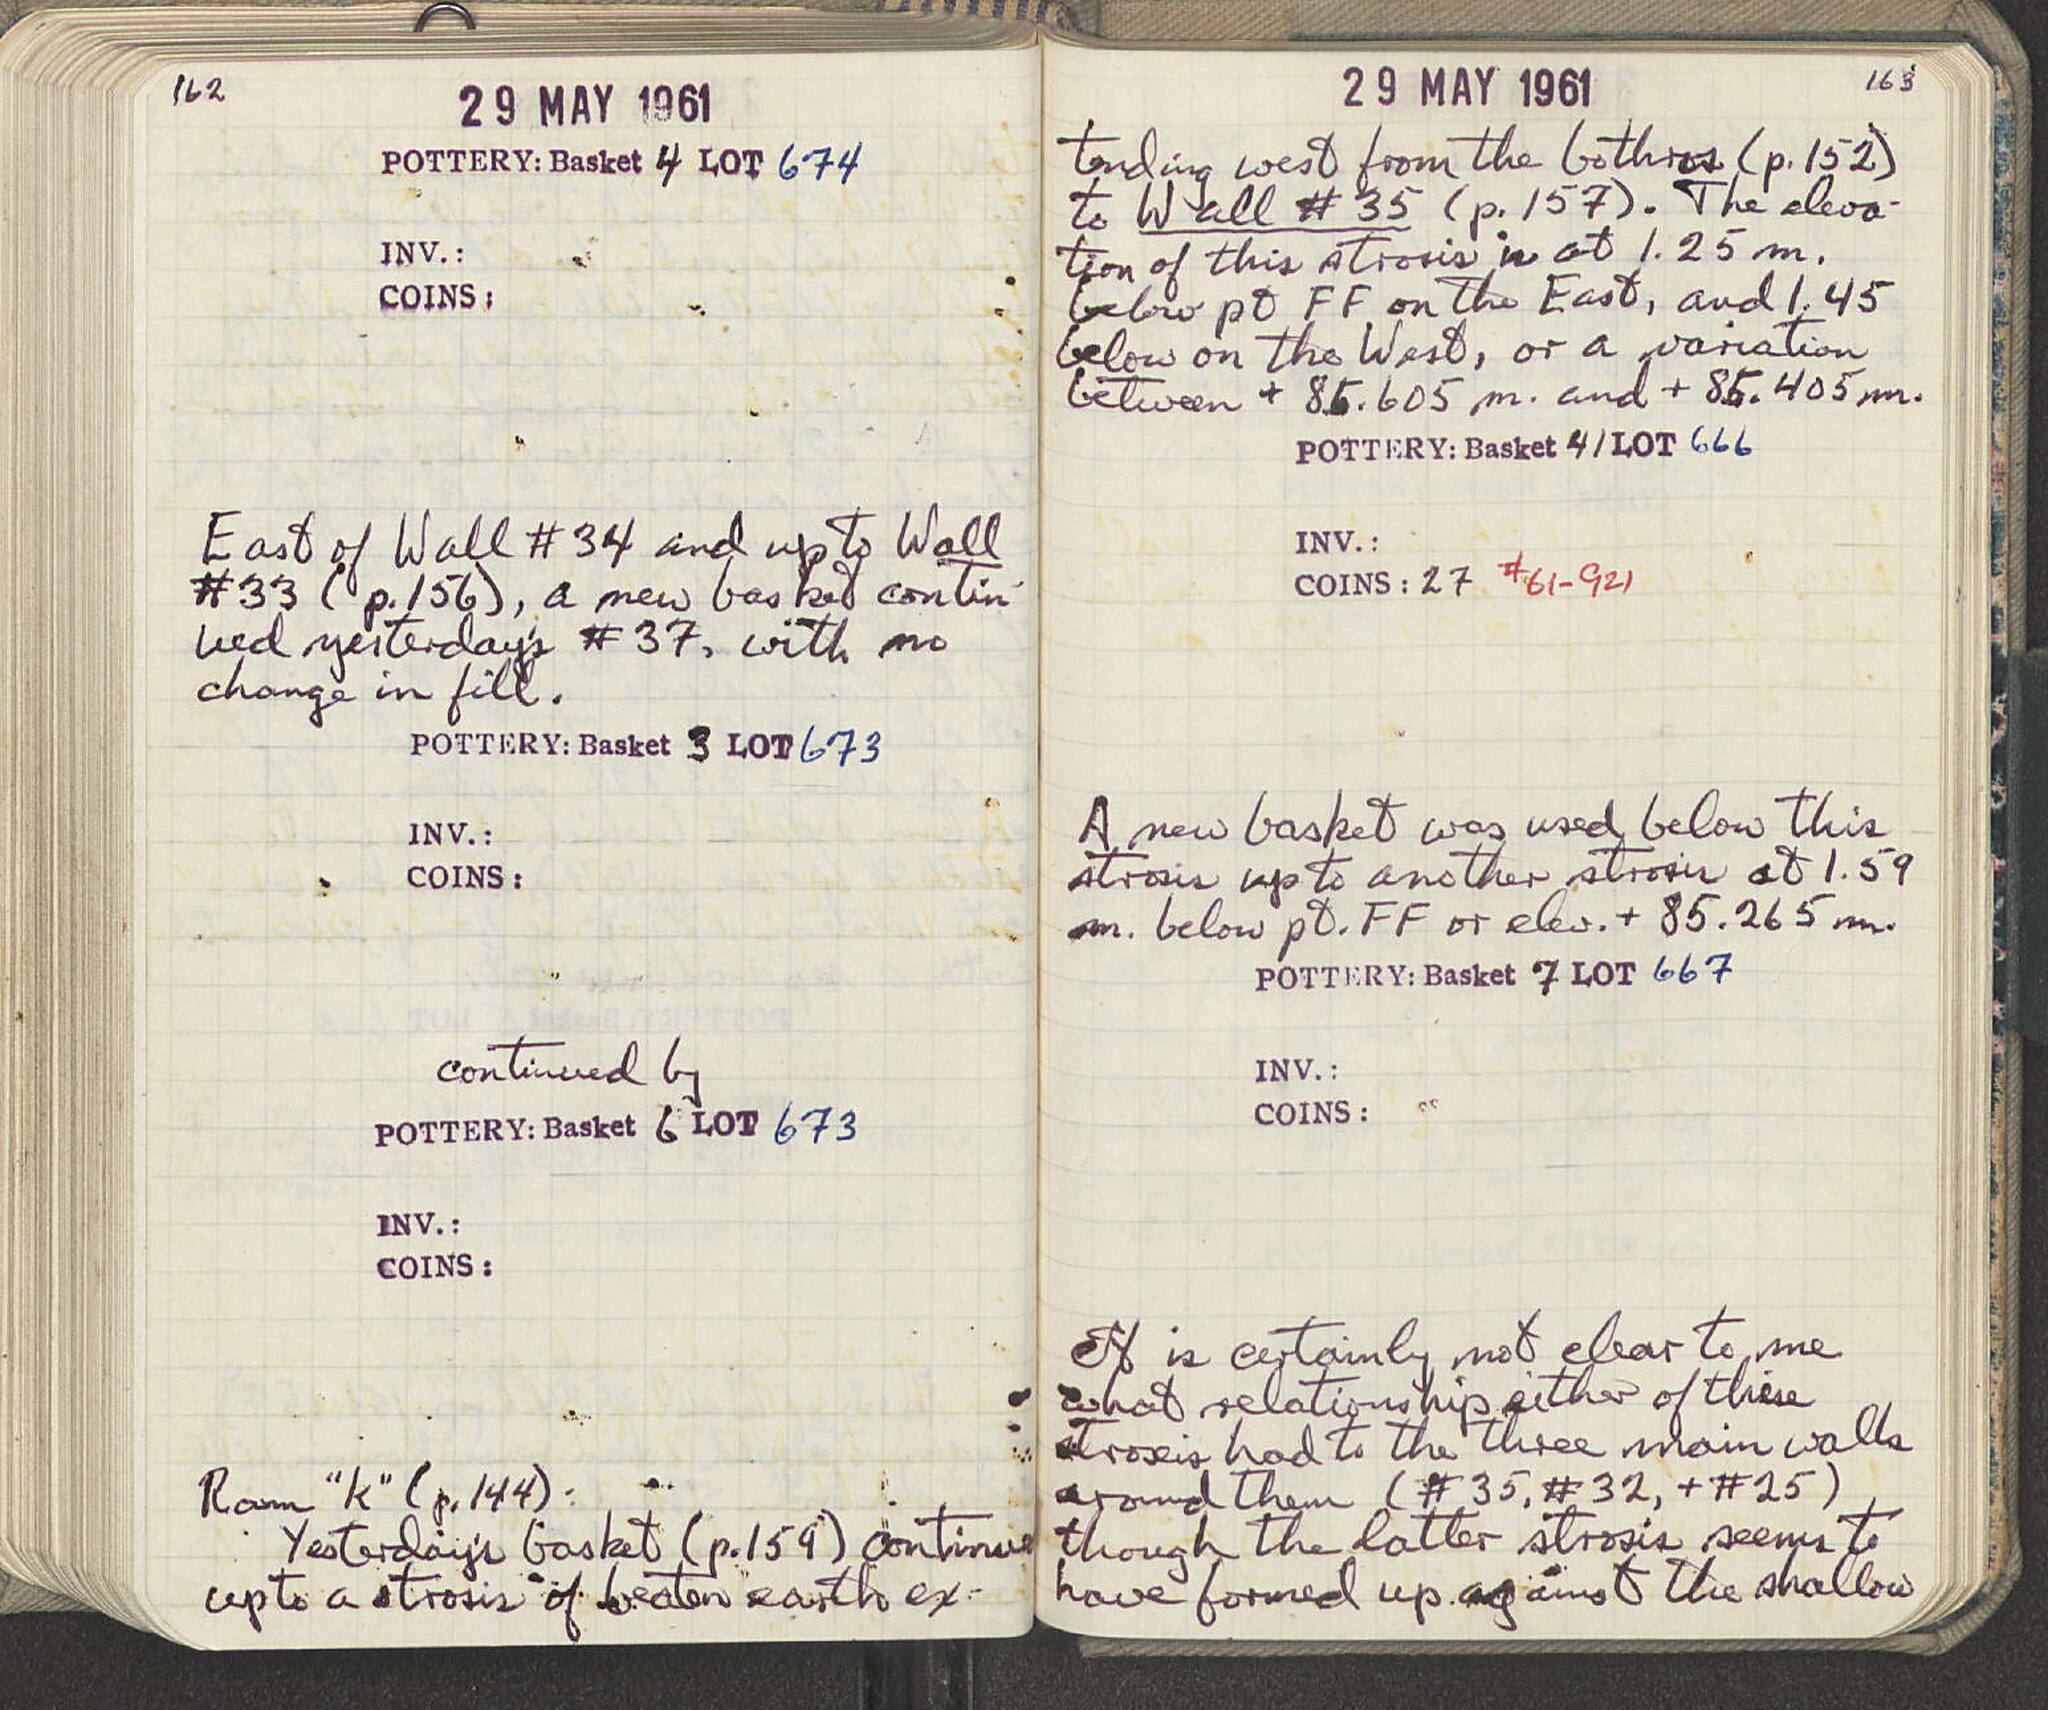 162
29 MAY 1961
POTTERY: Basket 4 LOT 674
INV.:
COINS:
East of Wall #34 and up to Wall
#33 (p.156), a new basket contin-
ued yesterday's #37, with no
change in fill.
POTTERY: Basket 3 LOT 673
INV.:
COINS:
continued by
POTTERY: Basket 6 LOT 673
INV.:
COINS:
Room "k" (p.144):
Yesterday's basket (p.159) continue
up to a strosis of beaten earth ex-
163
29 MAY 1961
tending west from the bothros (p.152)
to Wall #35 (p.157). The eleva-
tion of this strosis is at 1.25 m.
below pt FF on the East, and 1.45
below on the West, or a variation
between + 85.605 m. and + 85.405 m.
POTTERY: Basket 41 LOT 666
INV.:
COINS: 27 #61-921
A new basket was used below this
strosis up to another strosis at 1.59
m. below pt. FF or elev. + 85.265 m.
POTTERY: Basket 7 LOT 667
INV.:
COINS:
It is certainly not clear to me
what relationship either of these
stroseis had to the three main walls
around them (#35, #32, + #25)
though the latter strosis seems to
have formed up against the shallow